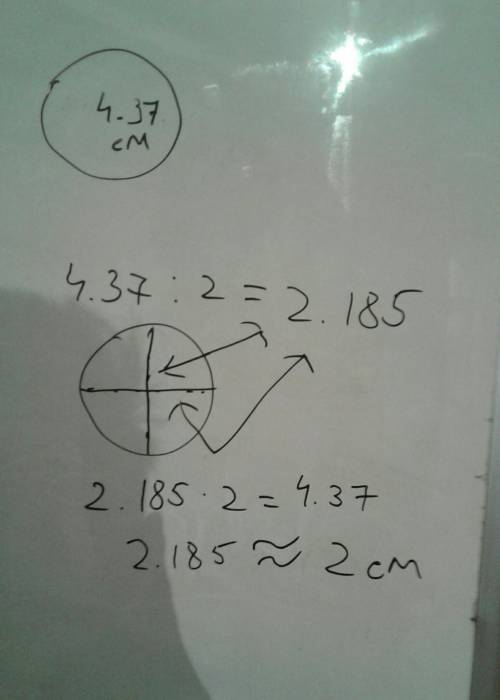 4.37
см
4.37 : 2 = 2.185
2.185 · 2 = 4.37
2.185 ≈ 2 см